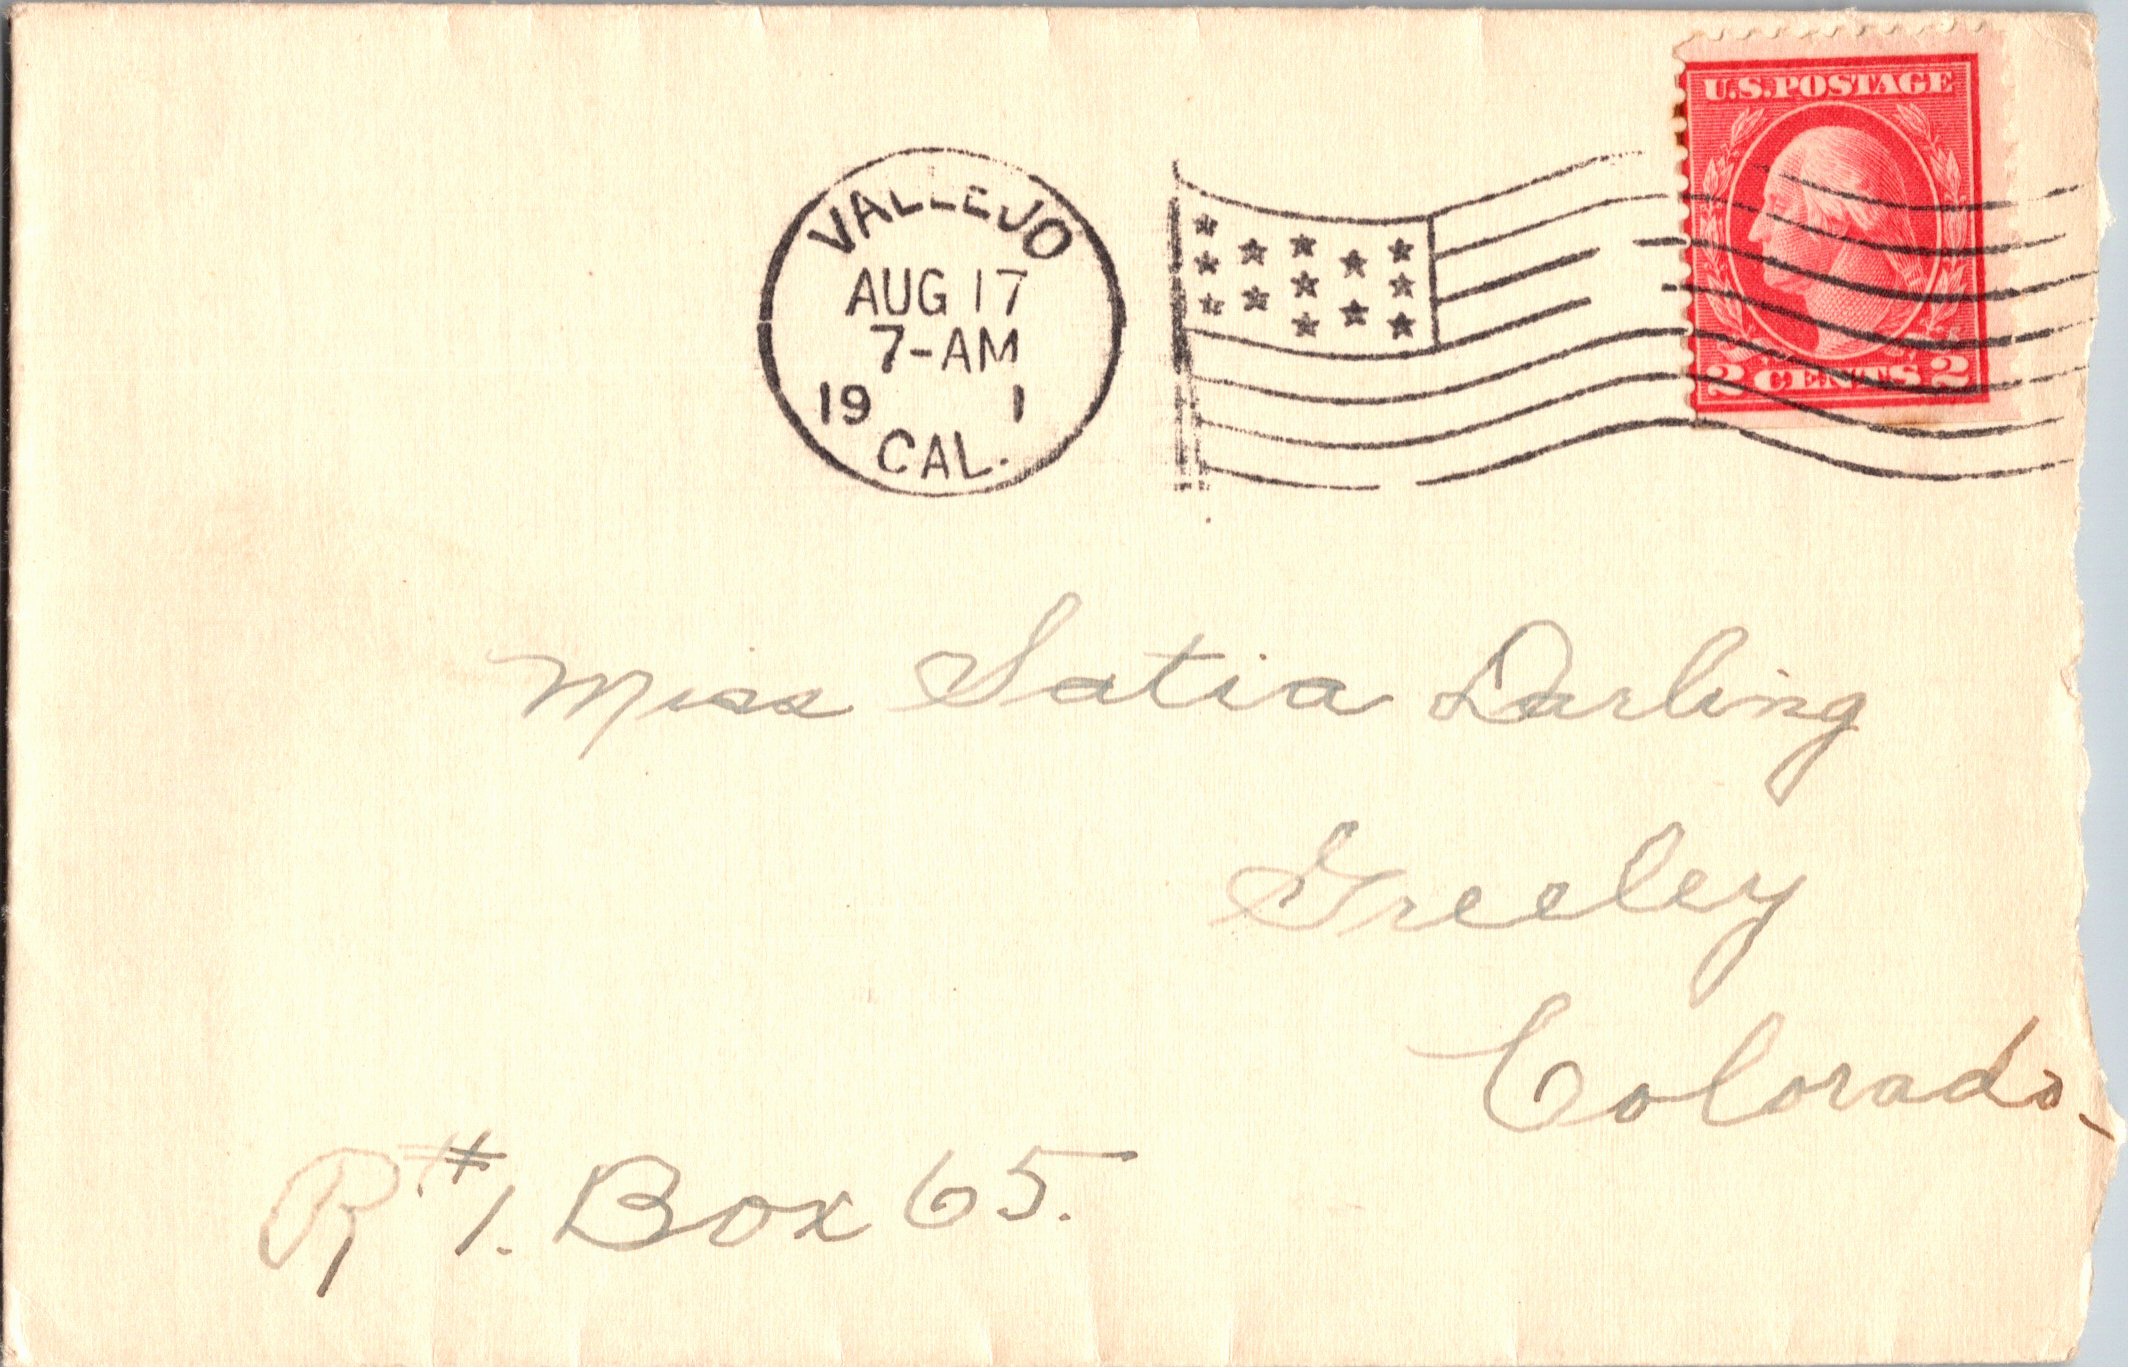 U.S. POSTAGE
2 CENTS 2
VALLEJO
AUG 17
7-AM
19 1
CAL.
Miss Satia Darling
Greeley
Colorado
R #1. Box 65.